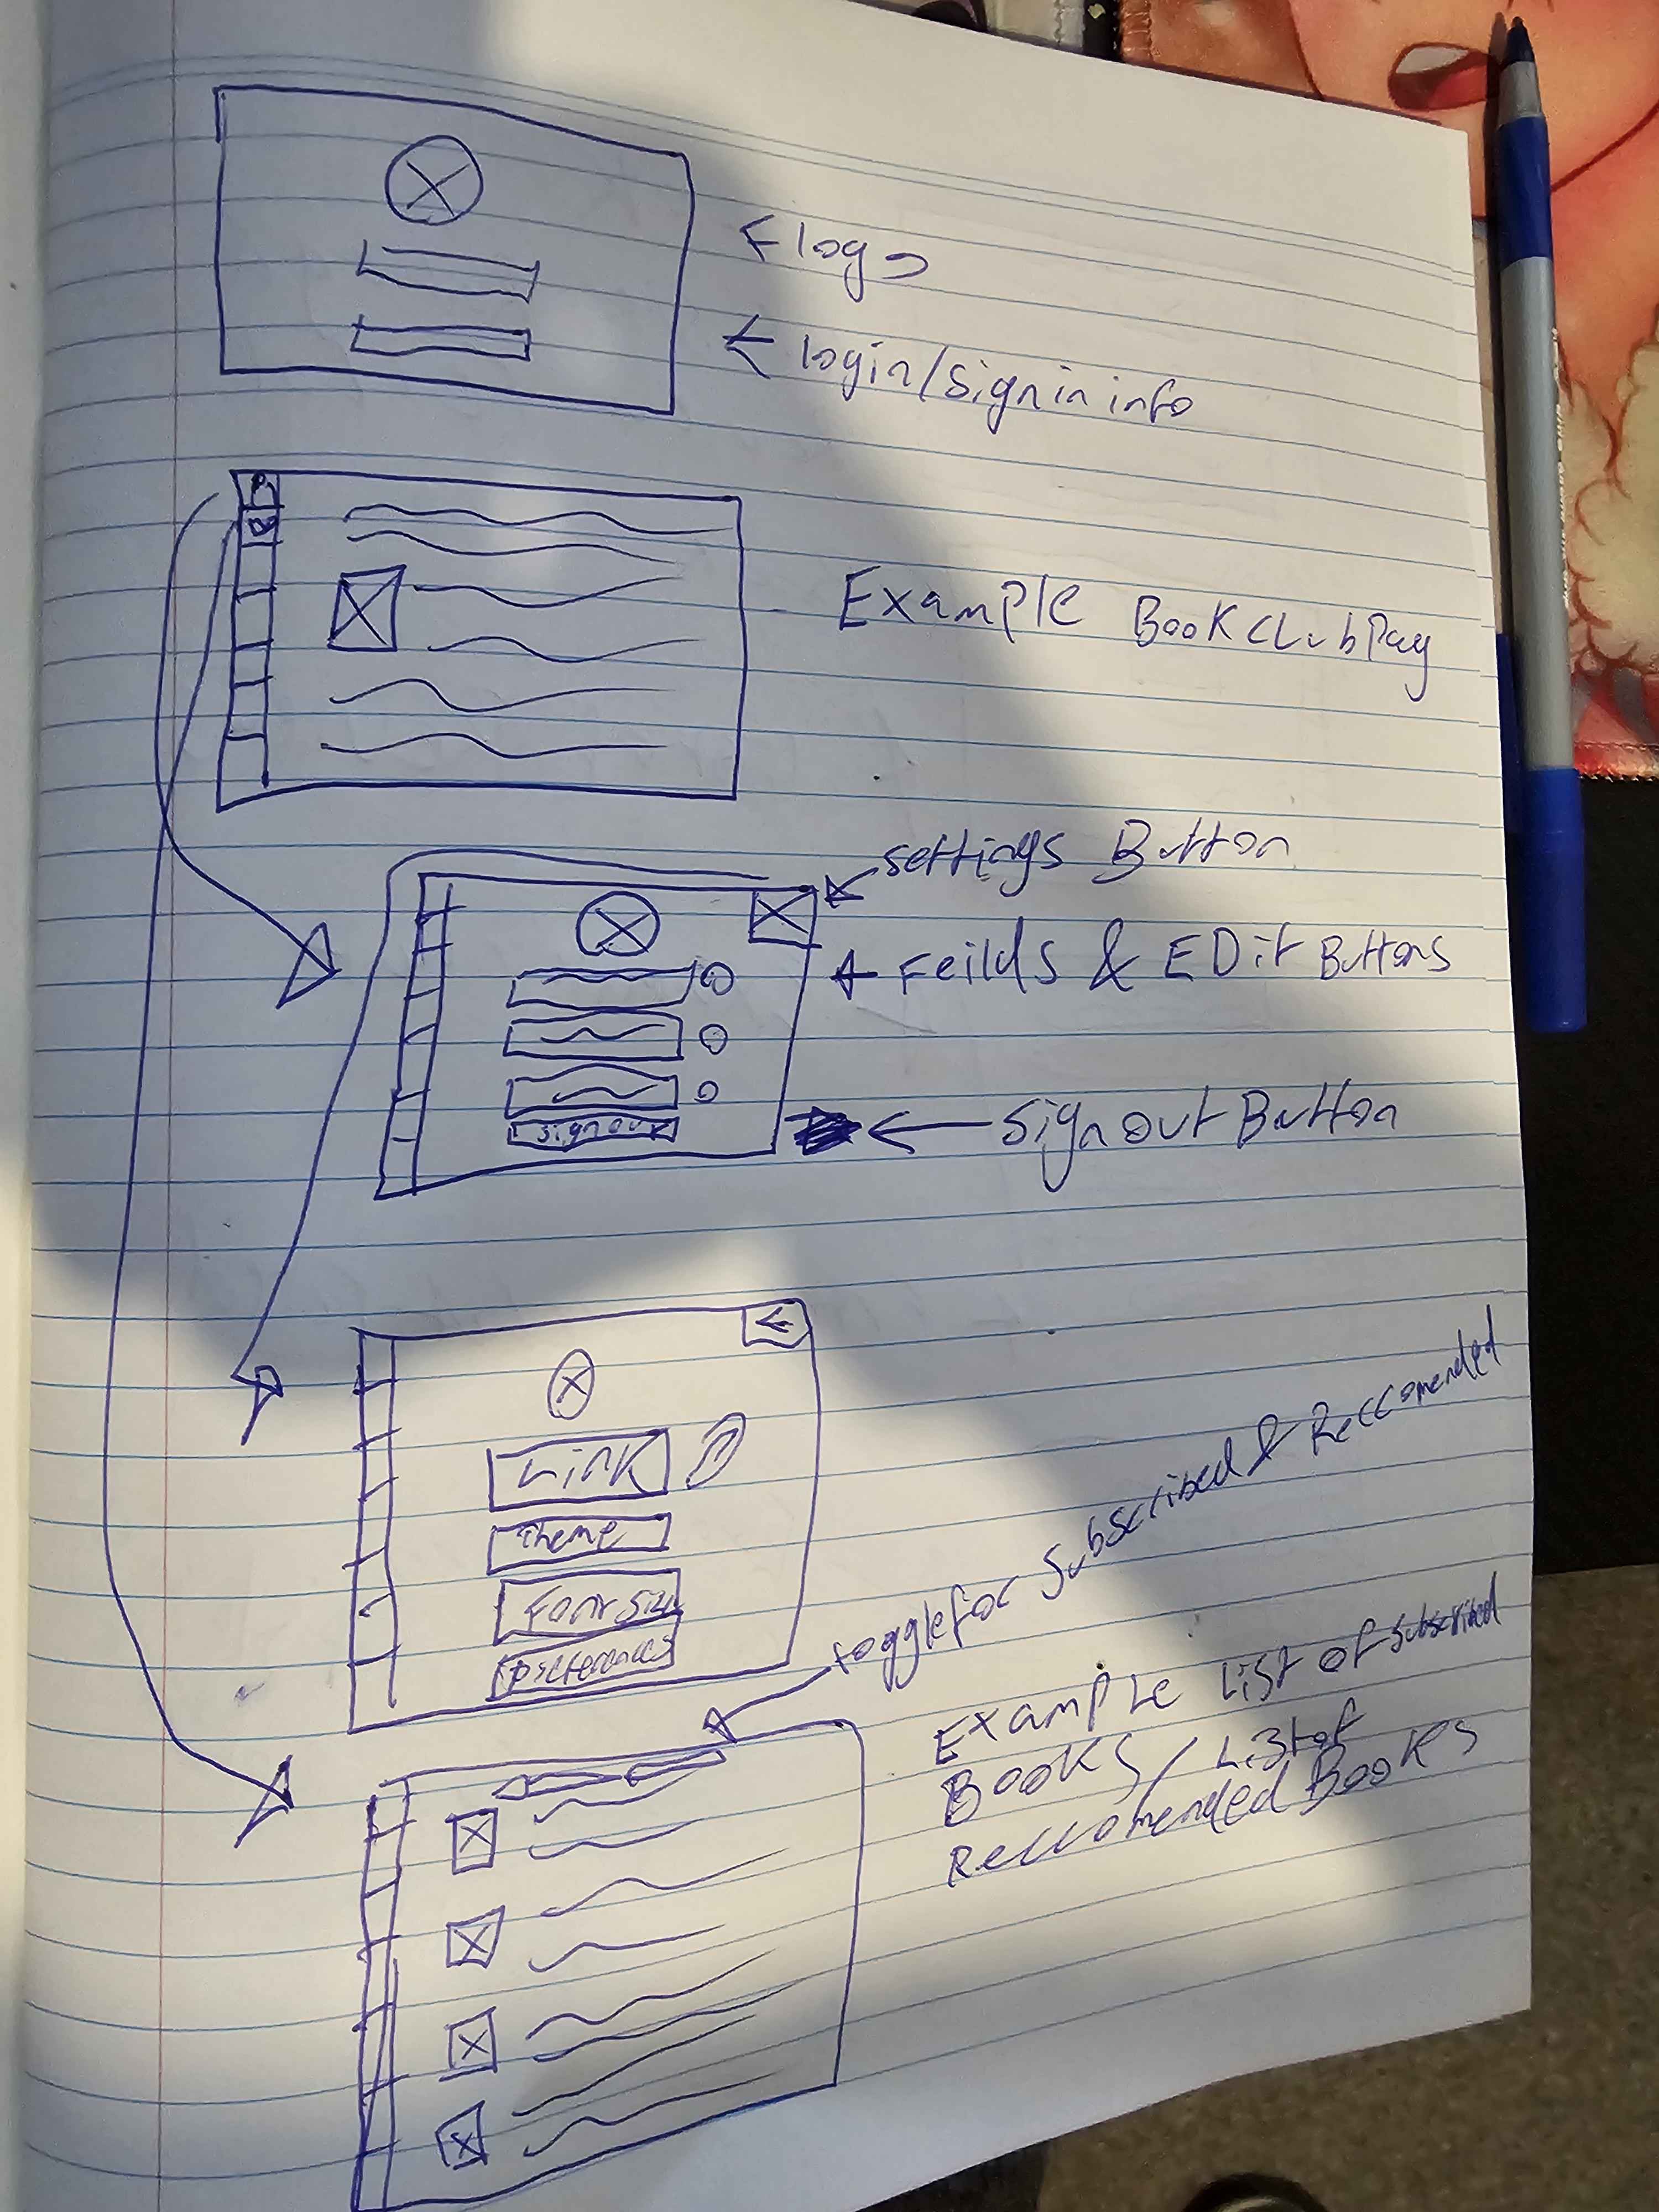 logo
login/sign in info
P
B
Example BookclubPag
settings Button
Feilds & EDit Buttons
sign out
Sign out Button
Link
Theme
Font Size
preferences
toggle for Subscribed & Reccomended
Example List of subscribed
Books / List of
Reccomended Books